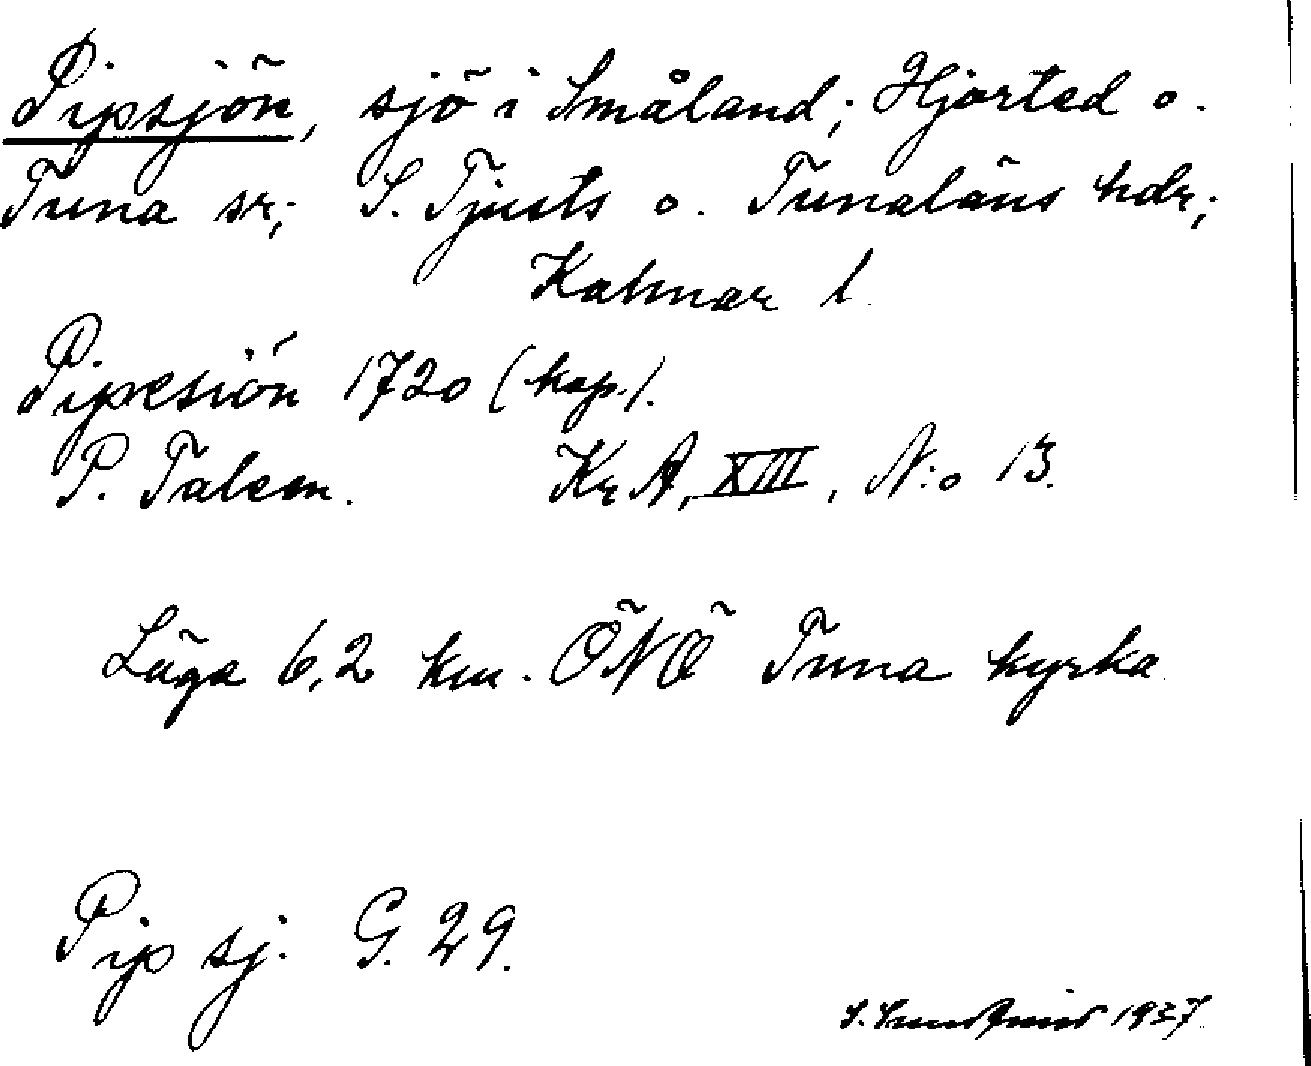 Pipsjön, sjö i Småland; Hjorted o.
Tuna sr; S. Tjusts o. Tunaläns hdr;
Kalmar l.
Pipesión 1720 (kop.).
P. Talem. Kr A, XIII, N:o 13.
Läge 6,2 km. ÖNÖ Tuna kyrka
Pip sj. G. 29.
S. 1937